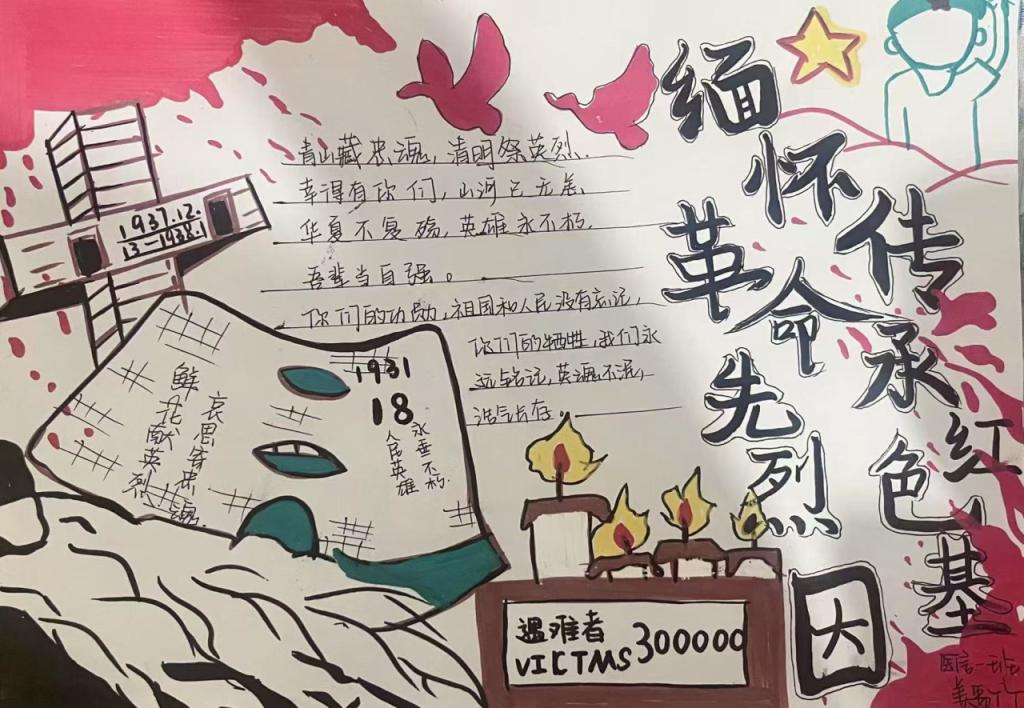 缅怀革命先烈
传承红色基因
青山藏忠魂，清明祭英烈.
幸得有你们，山河已无恙.
华夏不复殇，英雄永不朽.
吾辈当自强。
你们的功勋，祖国和人民没有忘记，
你们的牺牲，我们永
远铭记，英魂不泯，
浩气长存。
1937.12.
13-1938.1
1931
18
永垂不朽.
人民英雄
哀思寄忠魂.
鲜花献英烈
遇难者
VICTMS 300000
医言一班